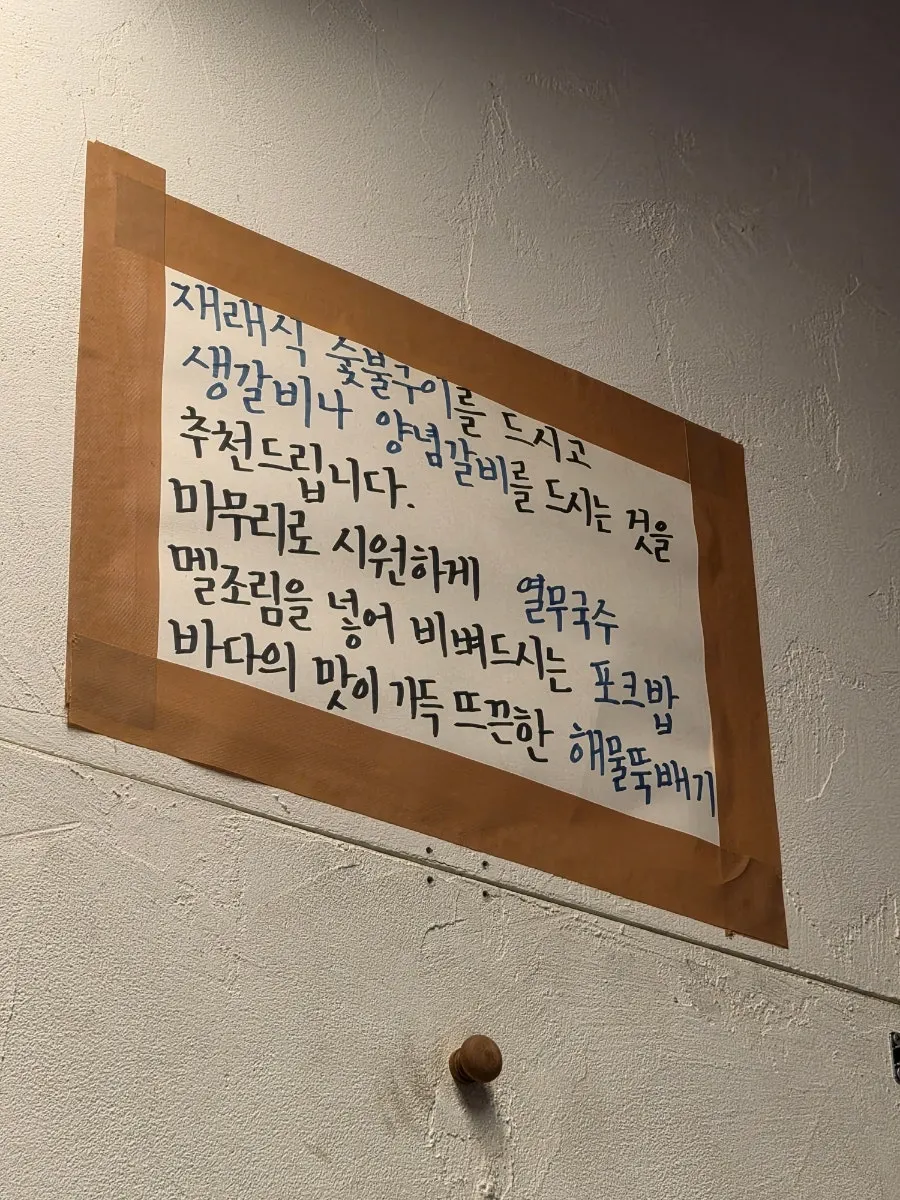 재래식 숯불구이를 드시고
생갈비나 양념갈비를 드시는 것을
추천드립니다.
마무리로 시원하게 열무국수
멜조림을 넣어 비벼드시는 포크밥
바다의 맛이 가득 뜨끈한 해물뚝배기